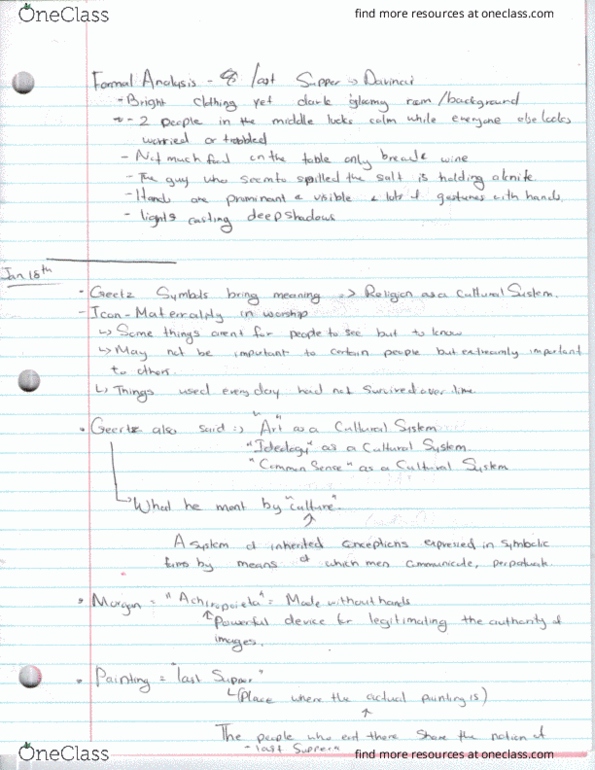 OneClass
find more resources at oneclass.com
Formal Analysis - of last Supper → Davinci
- Bright clothing yet dark gloomy room/background
- 2 people in the middle looks calm while everyone else looks
worried or trobled
- Not much food on the table only bread & wine
- The guy who seem to spilled the salt is holding a knife.
- Hands are prominant & visible & lots of gestures with hands.
- lights casting deep shadows
Jan 18th
- Geertz Symbols bring meaning → Religion as a Cultural System.
- Icon - Materiality in worship
↳ Some things arent for people to see but to know
↳ May not be important to certain people but extreamly important
to others.
↳ Things used every day had not survived over time.
• Geertz also said :→ "Art" as a Cultural System
"Ideology" as a Cultural System.
"Common Sence" as a Cultural System
↳ What he ment by "culture".
↗
A system of inherited conceptions expressed in symbolic
forms by means of which men communicate, perpetuate.
• Morgan = "Achiropoieta" = Made without hands
↑ Powerful device for legitimating the authority of
images.
• Painting = "last Supper"
↳ (Place where the actual painting is)
↗
The people who eat there share the notion of
- last Supper
OneClass
find more resources at oneclass.com